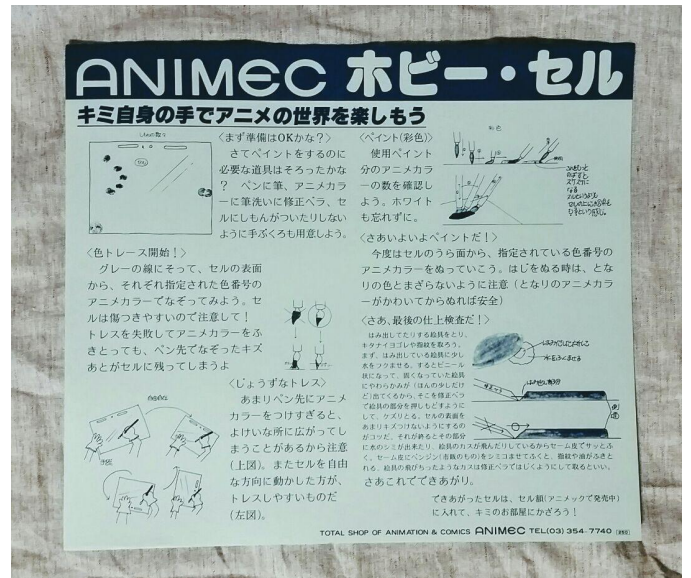 ANIMEC ホビー・セル
キミ自身の手でアニメの世界を楽しもう
〈まず準備はOKかな?〉
さてペイントをするのに
必要な道具はそろったかな
? ペンに筆、アニメカラ
ーに筆洗いに修正ベラ、セ
ルにしもんがついたりしない
ように手ぶくろも用意しよう。
〈色トレース開始!〉
グレーの線にそって、セルの表面
から、それぞれ指定された色番号の
アニメカラーでなぞってみよう。セ
ルは傷つきやすいので注意して!
トレスを失敗してアニメカラーをふ
きとっても、ペン先でなぞったキズ
あとがセルに残ってしまうよ
〈じょうずなトレス〉
あまりペン先にアニメ
カラーをつけすぎると、
よけいな所に広がってし
まうことがあるから注意
(上図)。またセルを自由
な方向に動かした方が、
トレスしやすいものだ
(左図)。
〈ペイント(彩色)〉
使用ペイント
分のアニメカラ
ーの数を確認し
よう。ホワイト
も忘れずに。
彩色
〈さあいよいよペイントだ!〉
今度はセルのうら面から、指定されている色番号の
アニメカラーをぬっていこう。はじをぬる時は、とな
りの色とまざらないように注意(となりのアニメカラ
ーがかわいてからぬれば安全)
〈さあ、最後の仕上検査だ!〉
はみ出してたりする絵具をとり、
キタナイヨゴレや指紋を取ろう。
まず、はみ出している絵具に少し
水をフクませる。するとビニール
状になって、固くなっていた絵具
にやわらかみが(ほんの少しだけ
ど)出てくるから、そこを修正ベラ
で絵具の部分を押しもどすように
して、ケズリとる。セルの表面を
あまりキズつけないようにするの
がコツだ。それが終るとその部分
に水のシミが出来たり、絵具のカスが飛んだりしているからセーム皮でサッとふ
く、セーム皮にベンジン(市販のもの)をシミコませてふくと、指紋や油がふきと
れる。絵具の飛びちったようなカスは修正ベラではじくようにして取るといい。
さあこれでできあがり。
できあがったセルは、セル額(アニメックで発売中)
に入れて、キミのお部屋にかざろう!
TOTAL SHOP OF ANIMATION & COMICS ANIMEC TEL(03) 354-7740